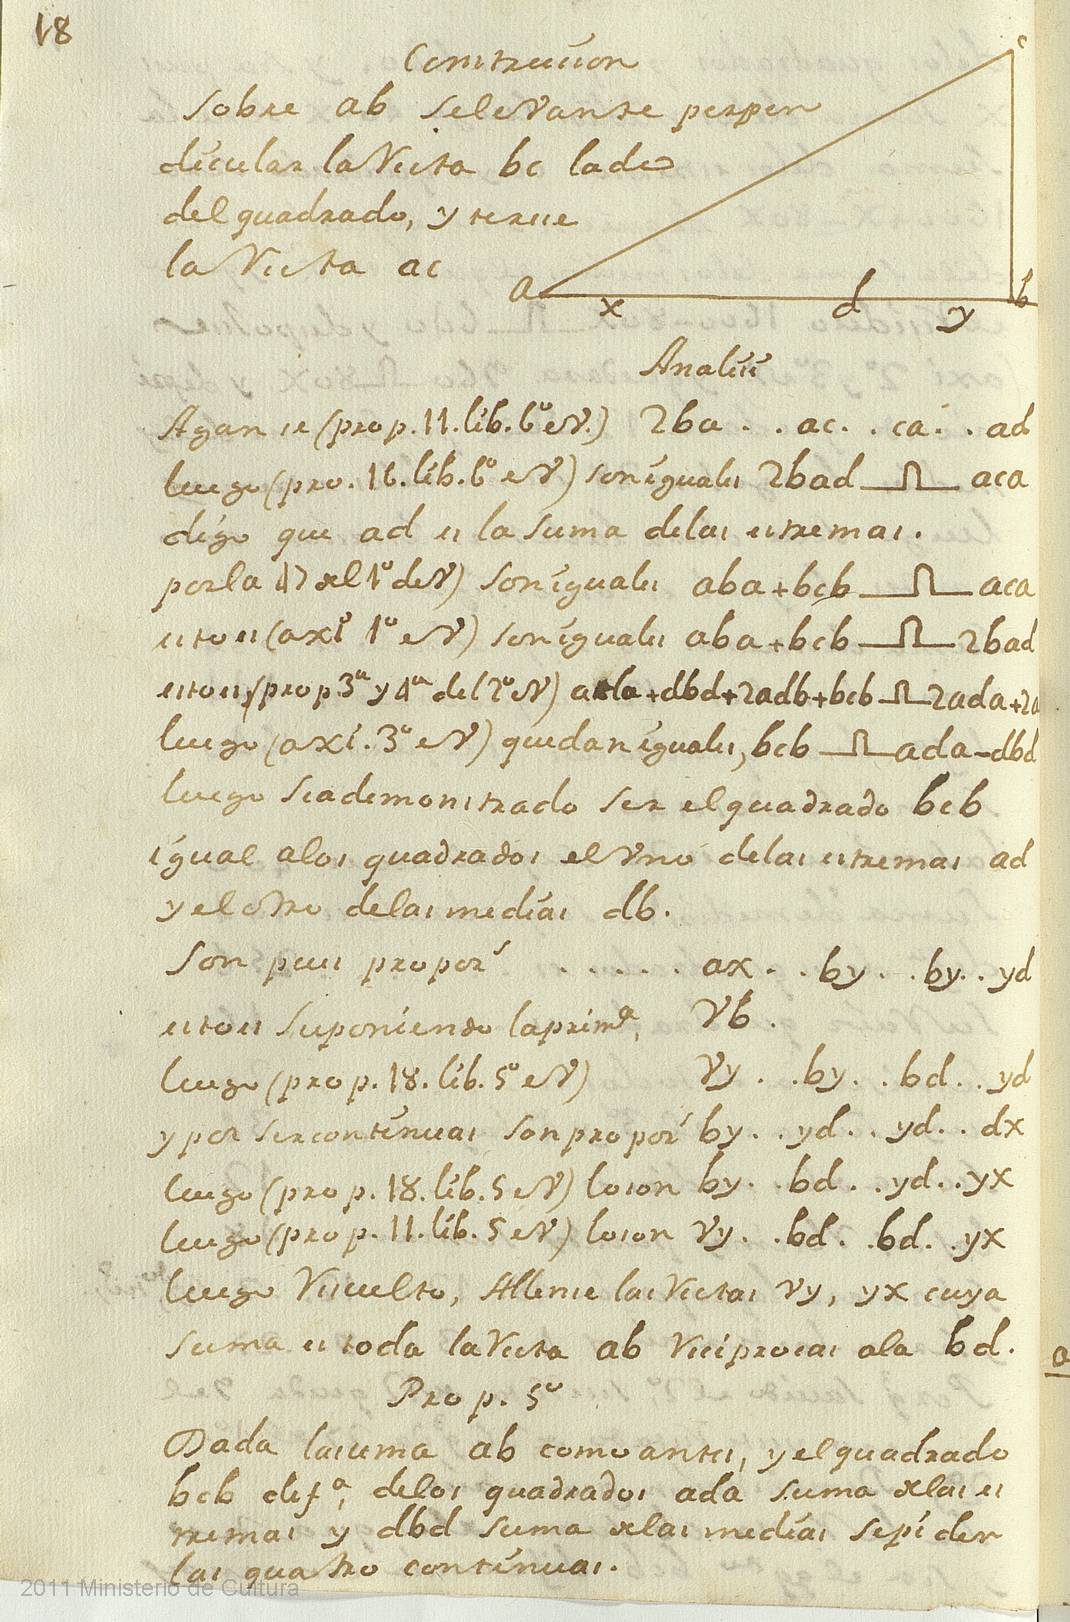 18
Construcion
c
Sobre ab selevante perpen
dicular la recta bc lado
del quadrado, y tirese
la recta ac
a x d y b
Analisis
Agan se (prop. 11. lib. 6º eV.) 2ba . . ac. . ca. . ad
luego (pro. 16. lib. 6º eV) son iguales 2bad ⎍ aca
digo que ad es la suma delas estremas.
por la 47 del 1º deV) son iguales aba + bcb ⎍ aca
esto es (axiº 1º eV) son iguales aba + bcb ⎍ 2bad
esto es, (prop. 3ª y 4ª del 2º eV) + dbd + 2adb + bcb ⎍ 2ada + 2a
luego (axi. 3º eV) quedan iguales, bcb ⎍ ada - dbd
luego seademonstrado ser el quadrado bcb
igual alos quadrados el Uno delas estremas ad
y el otro delas medias db.
Son pues propors . . . . . ax . . by . . by . . yd
esto es suponiendo la primª, Vb .
luego (prop. 18. lib. 5º eV) Vy . . by . . bd . . yd
y por ser continuas son propors by . . yd . . yd . . dx
luego (prop. 18. lib. 5 eV) loson by . . bd . . yd . . yx
luego (prop. 11. lib. 5 eV) loson Vy . . bd . . bd . . yx
luego Resuelto, Allense las Rectas Vy, yx cuya
suma es toda la Recta ab Reciprocas ala bd.
Prop. 5º
Dada lasuma ab como antes, y el quadrado
bcb difª, delos quadrados ada suma delas es
tremas y dbd suma delas medias sepiden
las quatro continuas.
a
2011 Ministerio de Cultura